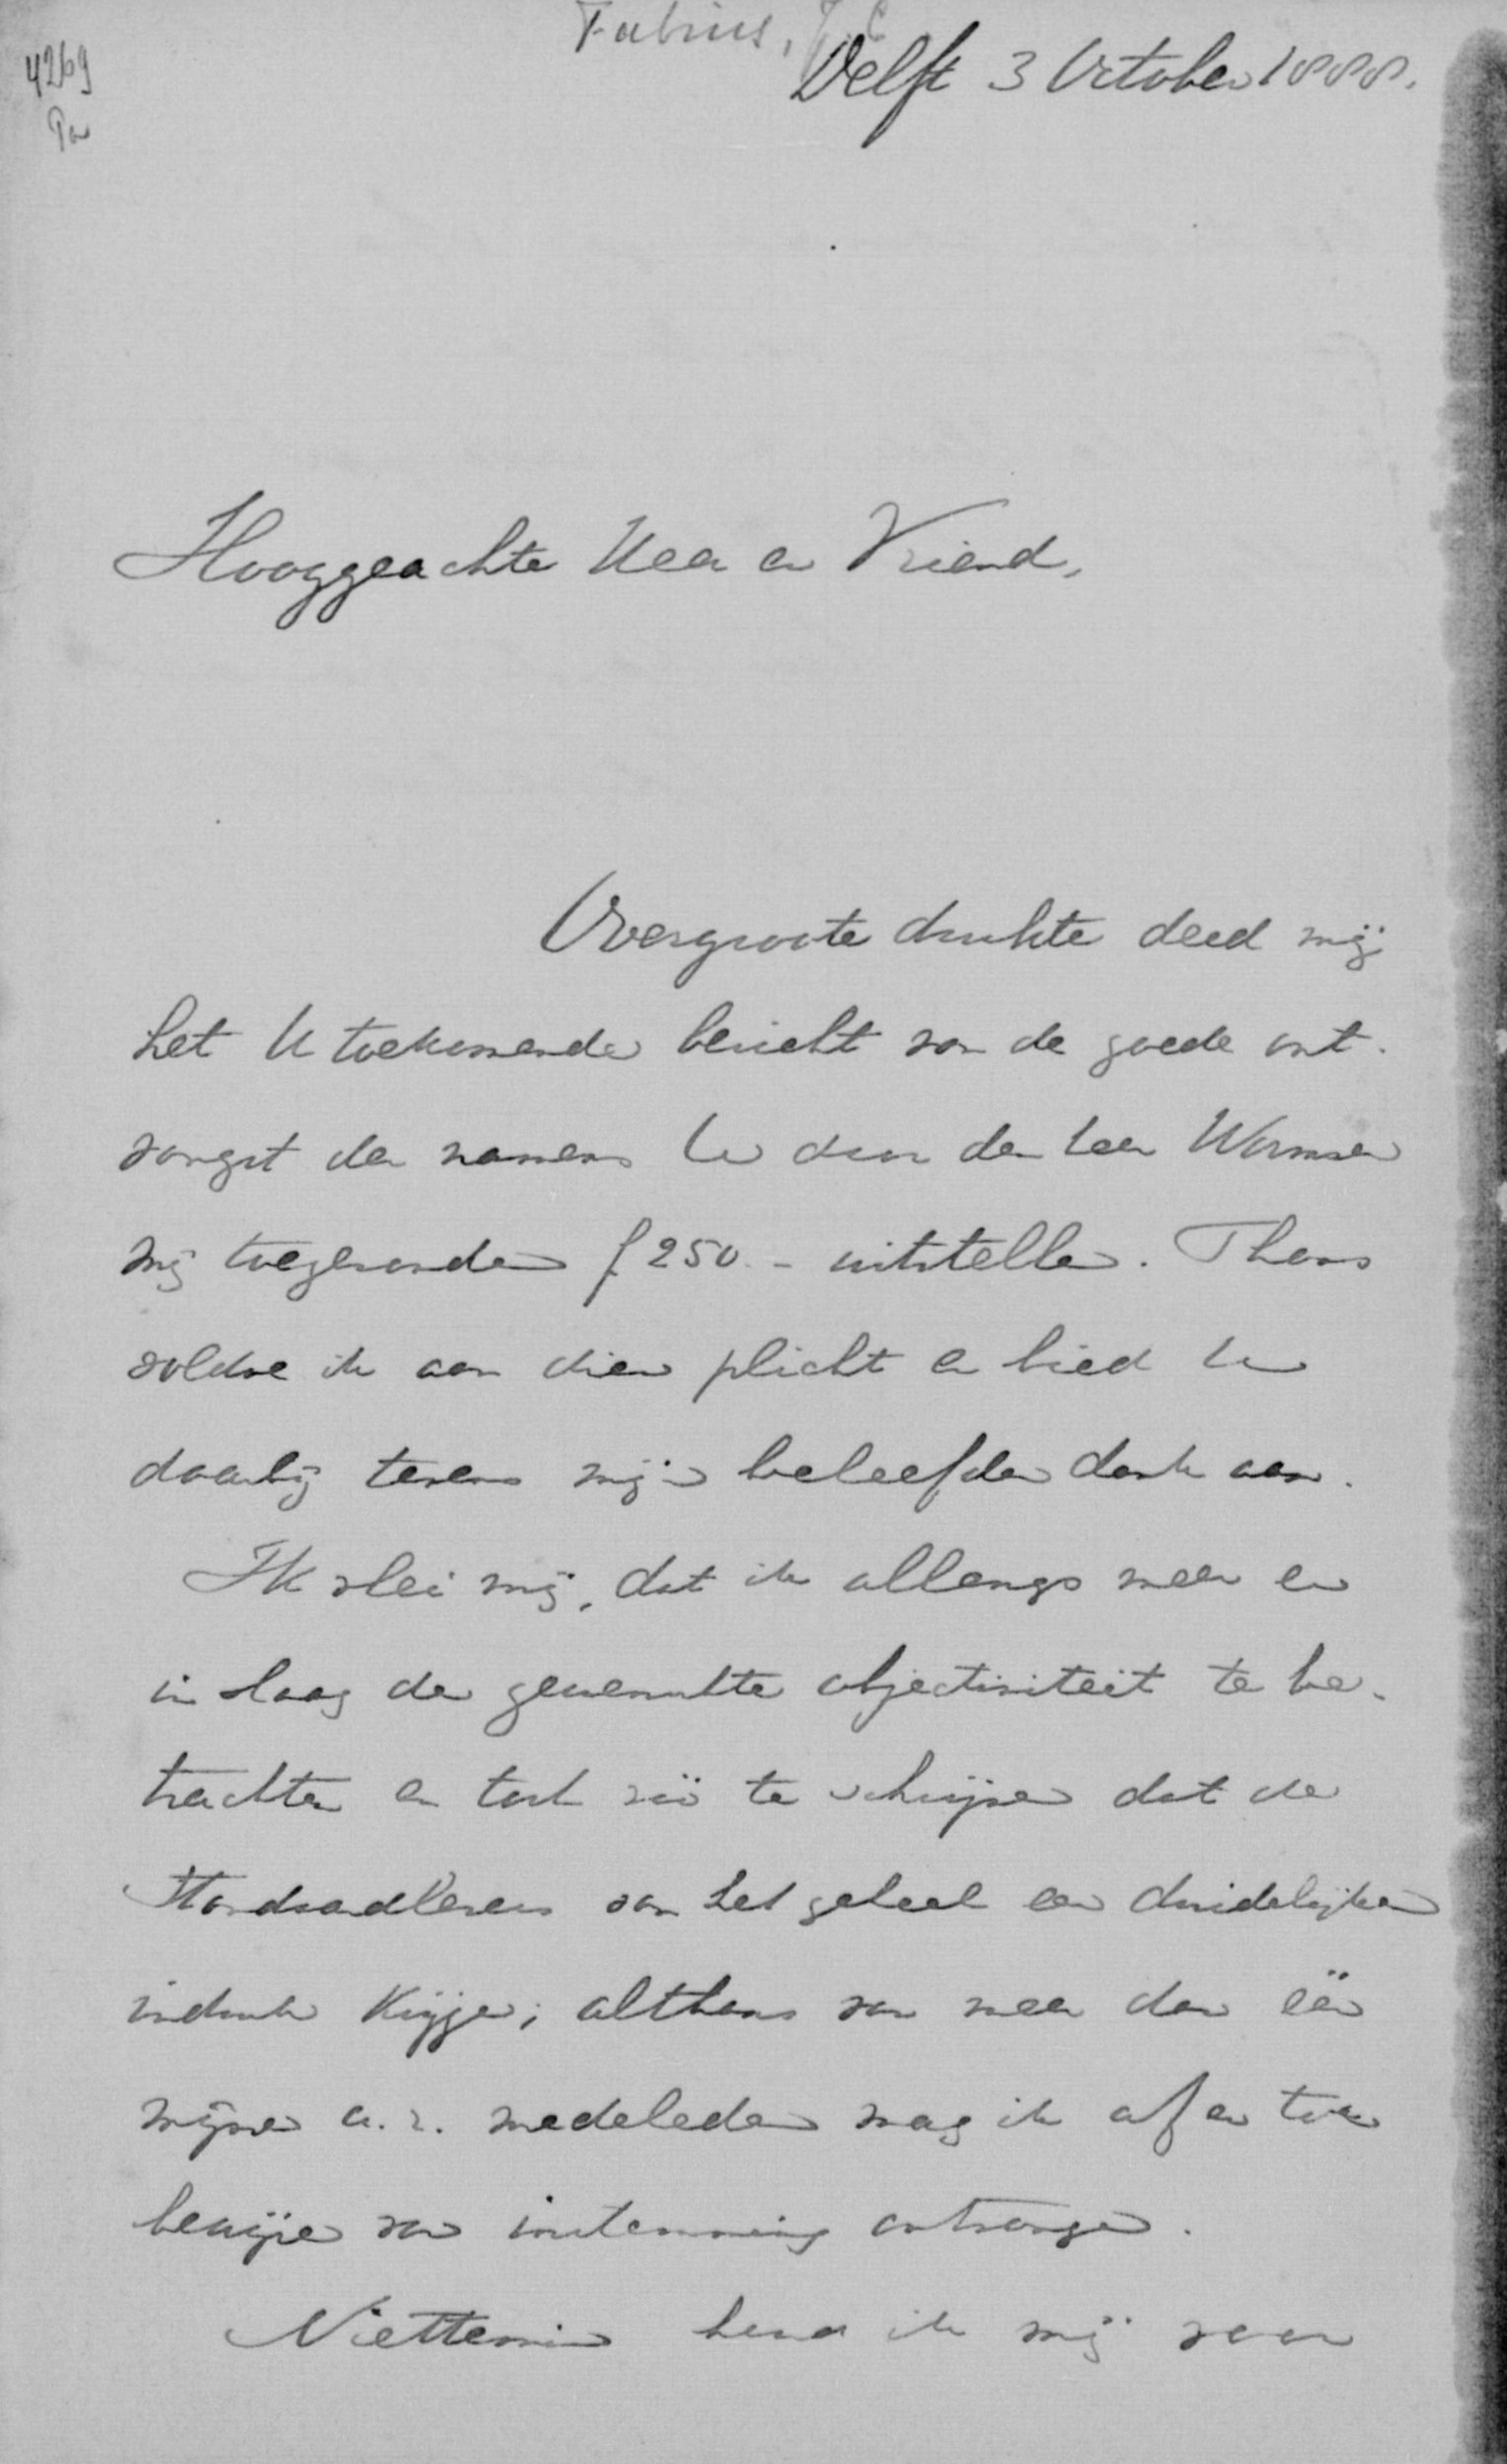 4269
Fabius, J. C
Delft 3 October 1888.
Hooggeachte Heer en Vriend,
Overgroote drukte deed mij
het U toekomende bericht van de goede ont-
vangst der namens U door den heer Wormser
mij toegezonden f 250.- uitstellen. Thans
voldoe ik aan dien plicht en bied U
daarbij tevens mijn beleefden dank aan.
Ik vlei mij, dat ik allengs meer er
in slaag de gewenschte objectiviteit te be-
trachten en toch zóó te schrijven dat de
Standaardlezers van het geheel een duidelijken
indruk krijgen; althans van meer dan één
mijner a. r. medeleden mag ik af en toe
bewijzen van instemming ontvangen.
Niettemin houd ik mij voor